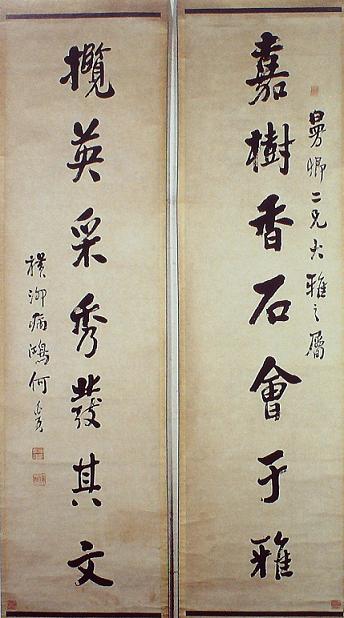 曼卿二兄大雅之屬
嘉樹香石會于雅
攬英采秀發其文
橫泖病鴻何